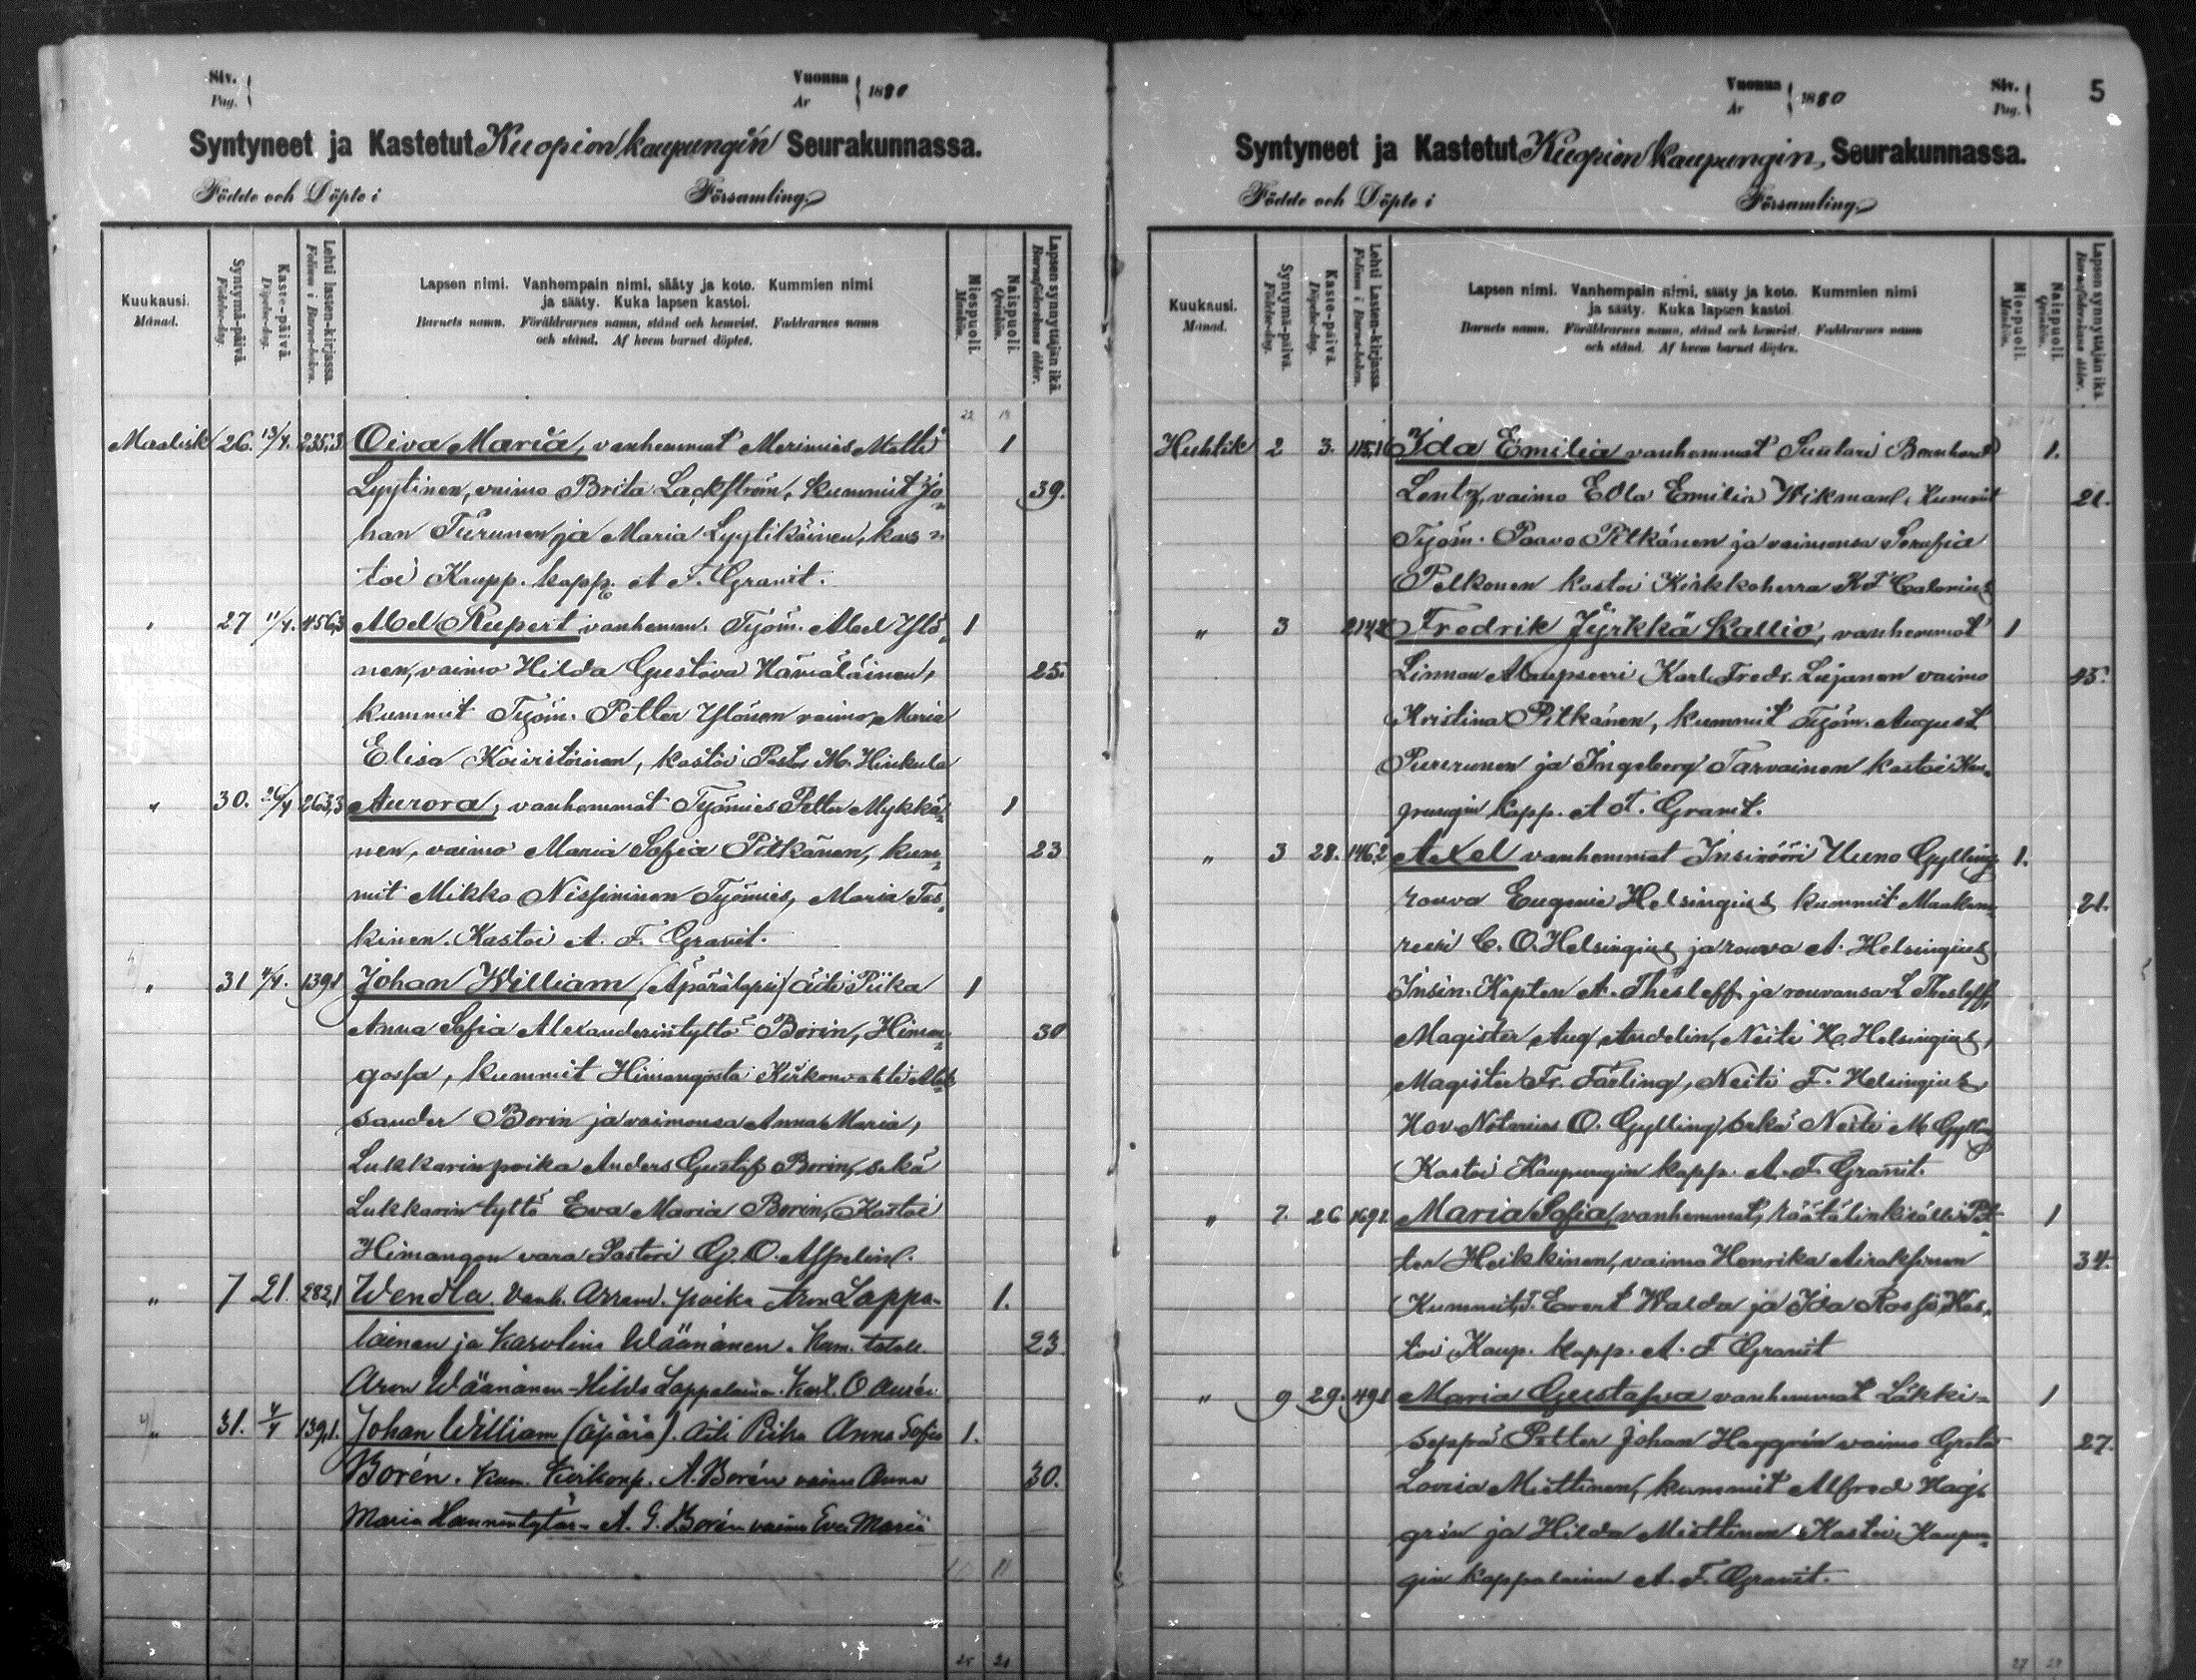 Siv.
Pag.
Vuonna
År
1880
Syntyneet ja Kastetut Kuopion kaupungin Seurakunnassa.
Födde och Döpte i Församling.
Kuukausi.
Månad.
Syntymä-päivä.
Födelse-dag.
Kaste-päivä.
Döpelse-dag.
Lehti lasten-kirjassa.
Folium i Barna-boken.
Lapsen nimi. Vanhempain nimi, sääty ja koto. Kummien nimi
ja sääty. Kuka lapsen kastoi.
Barnets namn. Föräldrarnes namn, stånd och hemvist. Faddrarnes namn
och stånd. Af hvem barnet döptes.
Miespuoli.
Mankön.
Naispuoli.
Qvinkön.
Lapsen synnyttäjän ikä.
Barnaföderskans ålder.
22 19
Maalisk 26. 13/4. 235,3 Oiva Maria, vanhemmat Merimies Matti 1
Lyytinen, vaimo Brita Lackström, Kummit Jo= 39.
han Turunen ja Maria Lyytikäinen, kas=
toi Kaupp. kapp. A F. Granit.
" 27 11/4. 456,3 Abel Rupert vanhemm. Työm. Abel Ylö= 1
nen, vaimo Hilda Gustava Hämäläinen, 25.
kummit Työm. Petter Ylönen vaimo, Maria
Elisa Koiristöinen, kastoi Past. M. Hinkula
" 30. 26/4 263,3 Aurora, vanhemmat Työmies Petter Mykkä= 1
nen, vaimo Maria Sofia Pitkänen, kum= 23
mit Mikko Nissininen Työmies, Maria Tos=
kinen. Kastoi A. F. Granit.
" 31 4/4. 139,1 Johan William (Äpärälapsi) äiti Piika 1
Anna Sofia Alexanderintyttö Borin, Himan= 30
gossa, kummit Himangosta Kirkonvahti Alek
sander Borin ja vaimonsa Anna Maria,
Lukkarin poika Anders Gustaf Borin, sekä
Lukkarin tyttö Eva Maria Borin, Kastoi
Himangon vara Pastori G. O. Aspelin.
" 7 21. 282,1 Wendla. Vanh. Arrend. poika Aron Lappa- 1.
lainen ja Karolina Wäänänen. Kum. 23
Aron Wäänänen - Hilda Lappalainen. Kast. O
" 31. 4/4 139,1. Johan William (äpärä). Äiti Piika Anna Sofia 1.
Borén. Kum. A. Borén vaimo Anna 30.
Maria Hannuntytär - A. G. Borén vaimo Eva Maria
10 11
25 21
Vuonna
År
1880
Siv.
Pag.
5
Syntyneet ja Kastetut Kuopion kaupungin Seurakunnassa.
Födde och Döpte i Församling.
Kuukausi.
Månad.
Syntymä-päivä.
Födelse-dag.
Kaste-päivä.
Döpelse-dag.
Lehti Lasten-kirjassa.
Folium i Barna-boken.
Lapsen nimi. Vanhempain nimi, sääty ja koto. Kummien nimi
ja sääty. Kuka lapsen kastoi.
Barnets namn. Föräldrarnes namn, stånd och hemvist. Faddrarnes namn
och stånd. Af hvem barnet döptes.
Miespuoli.
Mankön.
Naispuoli.
Qvinkön.
Lapsen synnyttäjän ikä.
Barnaföderskans ålder.
Huhtik 2 3. 115,1 Ida Emilia vanhemmat Suutari Bernhard 1.
Lentz, vaimo Edla Emilia Wikman, Kummit 21.
Työm. Paavo Pitkänen ja vaimonsa Serafia
Pelkonen kastoi Kirkkoherra K F Calonius
" 3 214,2 Fredrik Jyrkkä Kallio, vanhemmat 1
Linnan Karl. Fredr. Lujanen vaimo 25.
Kristina Pitkänen, kummit Työm. August
Purerunen ja Ingeborg Tarvainen kastoi Kau=
pungin Kapp. A F. Granit.
" 3 28. 146,2 Axel vanhemmat Insinööri Uuno Gylling 1.
rouva Eugenie Helsingius kummit Maakam= 21.
reeri C. O. Helsingius ja rouwa A. Helsingius
Insin. Kapten A. Thesleff ja rouvansa L Thesleff,
Magister Aug Andelin, Neiti H. Helsingius,
Magister Fr. Färling, Neiti F. Helsingius
Hov. Notarius O. Gylling, sekä Neiti M Gylling
Kastoi Kaupungin kapp. A. F. Granit.
" 7. 26 169,2 Maria Sofia, vanhemmat, räätälinkisälli Pet= 1
ter Heikkinen, vaimo Henrika Airaksinen 34.
Kummit, T. Evert Walda ja Ida Rossi, Kas=
toi Kaup. kapp. A. F Granit
" 9 29. 49,1 Maria Gustafva vanhemmat Läkki= 1
seppä Petter Johan Haggrén vaimo Greta 27.
Lovisa Miettinen, kummit Alfred Hag=
grén ja Hilda Miettinen Kastoi Kaupun=
gin kappalainen A. F. Granit.
27 24